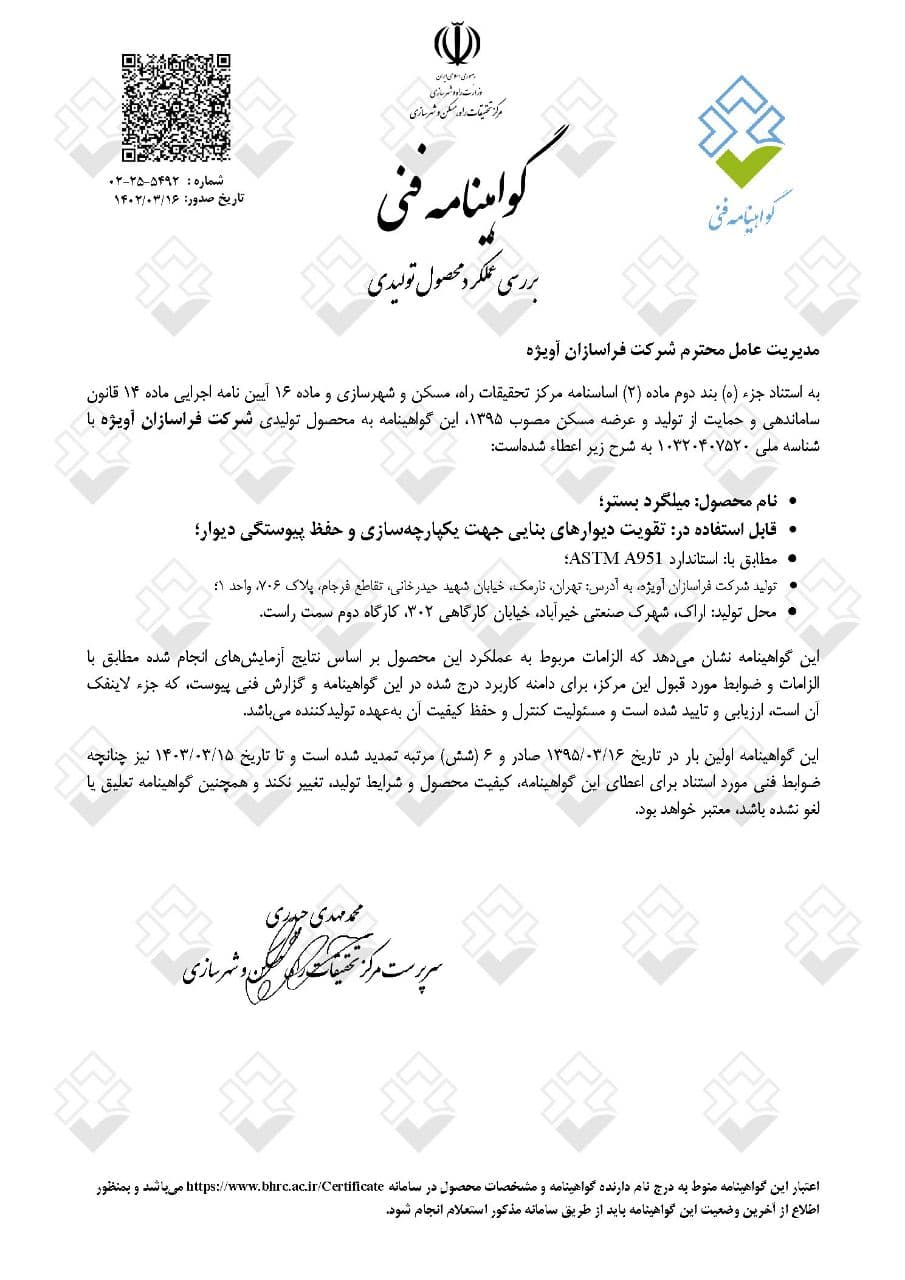 جمهوری اسلامی ایران
وزارت راه و شهرسازی
مرکز تحقیقات راه، مسکن و شهرسازی
گواهینامه فنی
شماره : ۵۴۹۲-۲۵-۰۲
تاریخ صدور: ۱۴۰۲/۰۳/۱۶
گواهینامه فنی
بررسی عملکرد محصول تولیدی
مدیریت عامل محترم شرکت فراسازان آویژه
به استناد جزء (ه) بند دوم ماده (۲) اساسنامه مرکز تحقیقات راه، مسکن و شهرسازی و ماده ۱۶ آیین نامه اجرایی ماده ۱۴ قانون
ساماندهی و حمایت از تولید و عرضه مسکن مصوب ۱۳۹۵، این گواهینامه به محصول تولیدی شرکت فراسازان آویژه با
شناسه ملی ۱۰۳۲۰۴۰۷۵۲۰ به شرح زیر اعطاء شده‌است:
• نام محصول: میلگرد بستر؛
• قابل استفاده در: تقویت دیوارهای بنایی جهت یکپارچه‌سازی و حفظ پیوستگی دیوار؛
• مطابق با: استاندارد ASTM A951؛
• تولید شرکت فراسازان آویژه، به آدرس: تهران، نارمک، خیابان شهید حیدرخانی، تقاطع فرجام، پلاک ۷۰۶، واحد ۱؛
• محل تولید: اراک، شهرک صنعتی خیرآباد، خیابان کارگاهی ۳۰۲، کارگاه دوم سمت راست.
این گواهینامه نشان می‌دهد که الزامات مربوط به عملکرد این محصول بر اساس نتایج آزمایش‌های انجام شده مطابق با
الزامات و ضوابط مورد قبول این مرکز، برای دامنه کاربرد درج شده در این گواهینامه و گزارش فنی پیوست، که جزء لاینفک
آن است، ارزیابی و تایید شده است و مسئولیت کنترل و حفظ کیفیت آن به‌عهده تولیدکننده می‌باشد.
این گواهینامه اولین بار در تاریخ ۱۳۹۵/۰۳/۱۶ صادر و ۶ (شش) مرتبه تمدید شده است و تا تاریخ ۱۴۰۳/۰۳/۱۵ نیز چنانچه
ضوابط فنی مورد استناد برای اعطای این گواهینامه، کیفیت محصول و شرایط تولید، تغییر نکند و همچنین گواهینامه تعلیق یا
لغو نشده باشد، معتبر خواهد بود.
محمدمهدی حیدری
سرپرست مرکز تحقیقات راه، مسکن و شهرسازی
اعتبار این گواهینامه منوط به درج نام دارنده گواهینامه و مشخصات محصول در سامانه https://www.bhrc.ac.ir/Certificate می‌باشد و بمنظور
اطلاع از آخرین وضعیت این گواهینامه باید از طریق سامانه مذکور استعلام انجام شود.